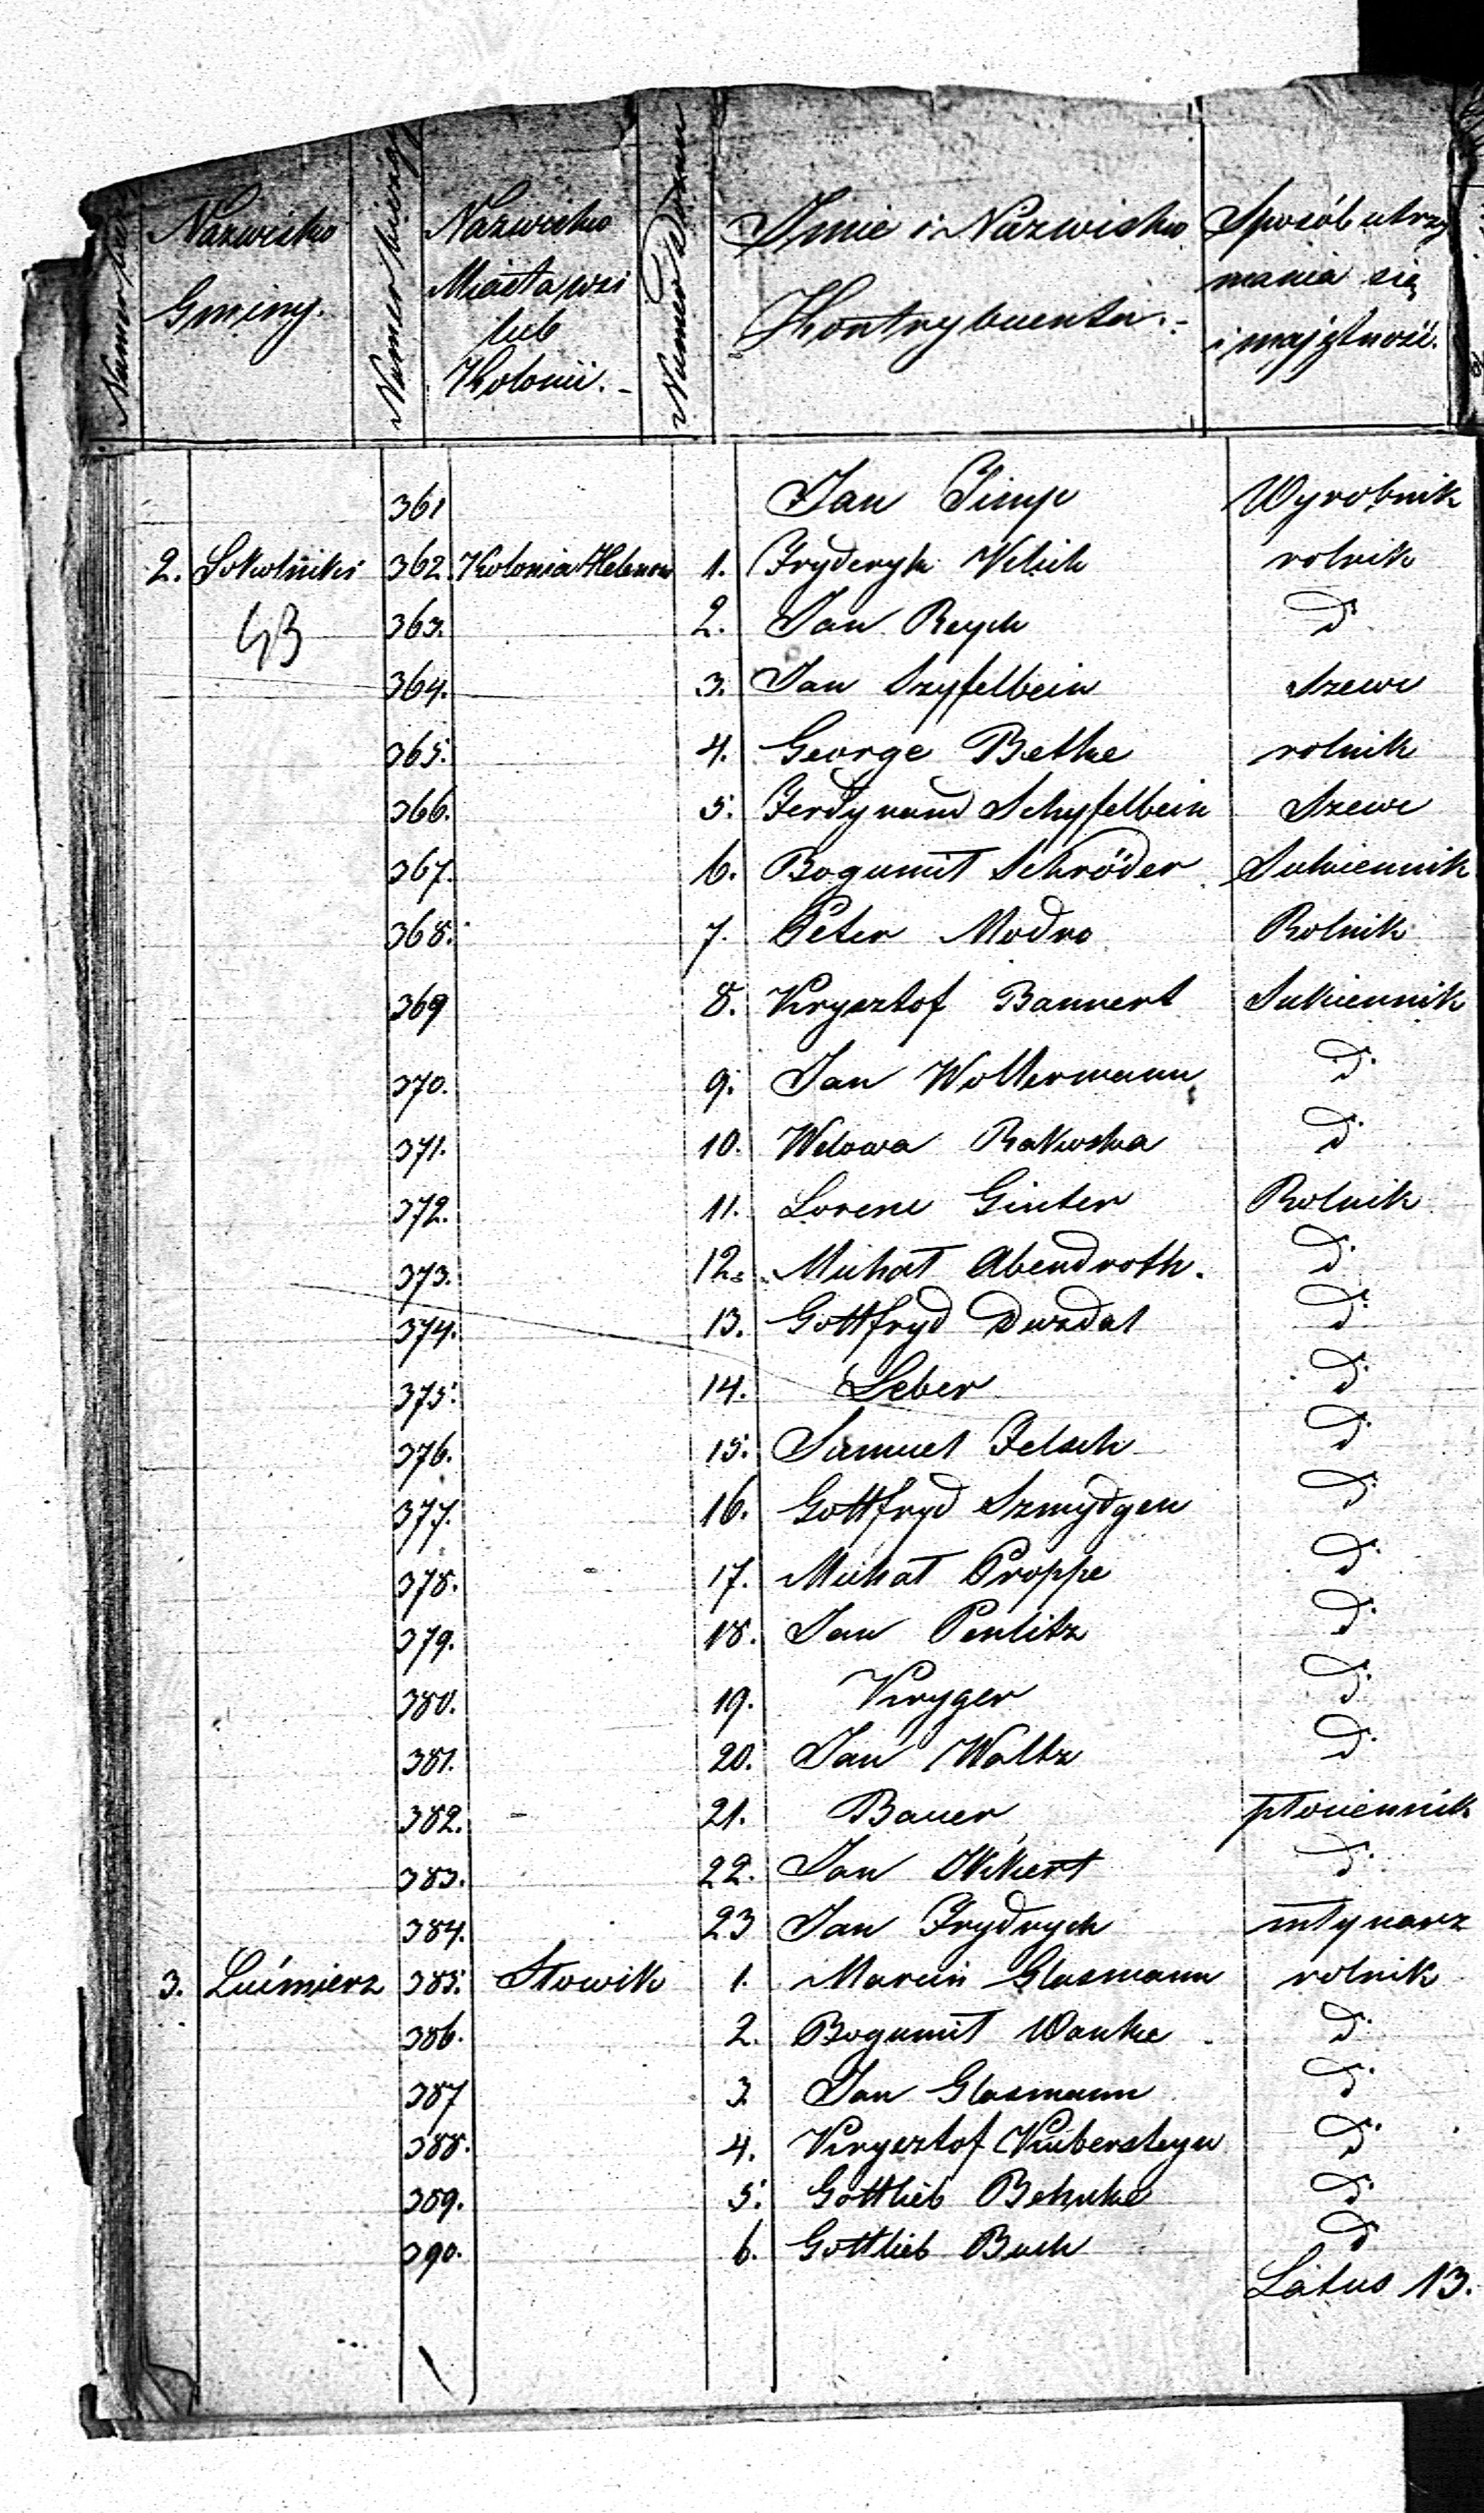 Nazwisko Gminy.
Numer bieżący
Nazwisko Miasta wsi lub Kolonii.
Numer Domu
Imie i Nazwisko Kontrybuenta.
Sposób utrzymania się i majętność.
361 Jan Timp Wyrobnik
2. Sokolniki 362. Kolonia Helenow 1. Fryderyk Welich rolnik
363. 2. Jan Reych d
364. 3. Jan Szyfelbein Szewc
365. 4. George Bethe rolnik
366. 5. Ferdynand Schyfelbein Szewc
367. 6. Bogumił Schröder Sukiennik
368. 7. Peter Modro Rolnik
369 8. Krysztof Bannert Sukiennik
370. 9. Jan Woltermann d
371. 10. Wdowa Rakowska d
372. 11. Lorenc Ginter Rolnik
373. 12. Michał Abendroth. d
374. 13. Gottfryd d
375. 14. Leber d
376. 15. Samuel Felsch d
377. 16. Gottfryd Szmydgen d
378. 17. Michał Proppe d
379. 18. Jan Penlitz d
380. 19. Kryger d
381. 20. Jan Waltz d
382. 21. Bauer płuciennik
383. 22. Jan d
384. 23 Jan Frydrych młynarz
3. Lućmierz 385. Słowik 1. Marcin Glasmann rolnik
386. 2. Bogumił Wanke d
387 3. Jan Glasmann d
388. 4. Krysztof d
389. 5. Gottlieb Behnke d
390. 6. Gottlieb Buch d
Latus 13.